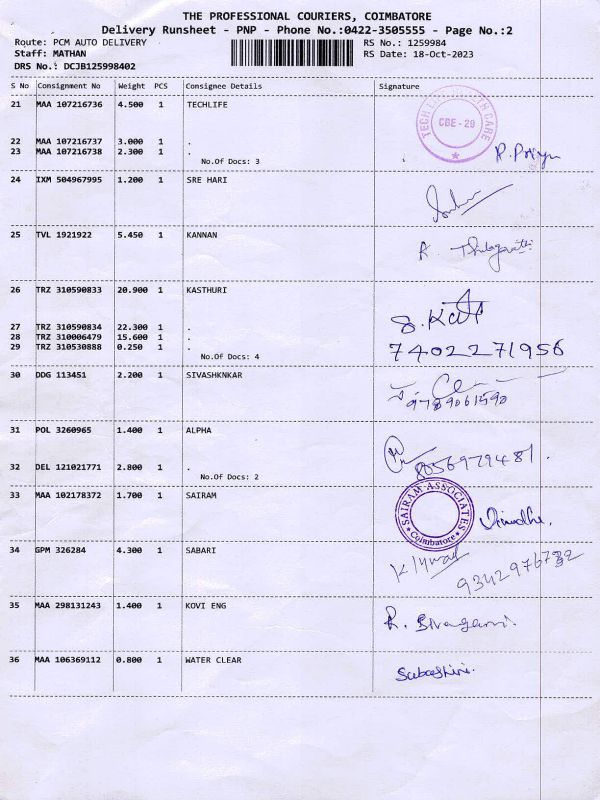 THE PROFESSIONAL COURIERS, COIMBATORE
Delivery Runsheet - PNP - Phone No.:0422-3505555 - Page No.:2
Route: PCM AUTO DELIVERY RS No.: 1259984
Staff: MATHAN RS Date: 18-Oct-2023
DRS No.: DCJB125998402
S No Consignment No Weight PCS Consignee Details Signature
21 MAA 107216736 4.500 1 TECHLIFE
CBE - 29
22 MAA 107216737 3.000 1 .
23 MAA 107216738 2.300 1 .
No.Of Docs: 3
24 IXM 504967995 1.200 1 SRE HARI
25 TVL 1921922 5.450 1 KANNAN
26 TRZ 310590833 20.900 1 KASTHURI
27 TRZ 310590834 22.300 1 .
28 TRZ 310006479 15.600 1 .
29 TRZ 310530888 0.250 1 . 7402271956
No.Of Docs: 4
30 DDG 113451 2.200 1 SIVASHKNKAR
31 POL 3260965 1.400 1 ALPHA
32 DEL 121021771 2.800 1 . 8056979481.
No.Of Docs: 2
33 MAA 102178372 1.700 1 SAIRAM
SAIRAM ASSOCIATES
Coimbatore
34 GPM 326284 4.300 1 SABARI
35 MAA 298131243 1.400 1 KOVI ENG
36 MAA 106369112 0.800 1 WATER CLEAR Subashini.